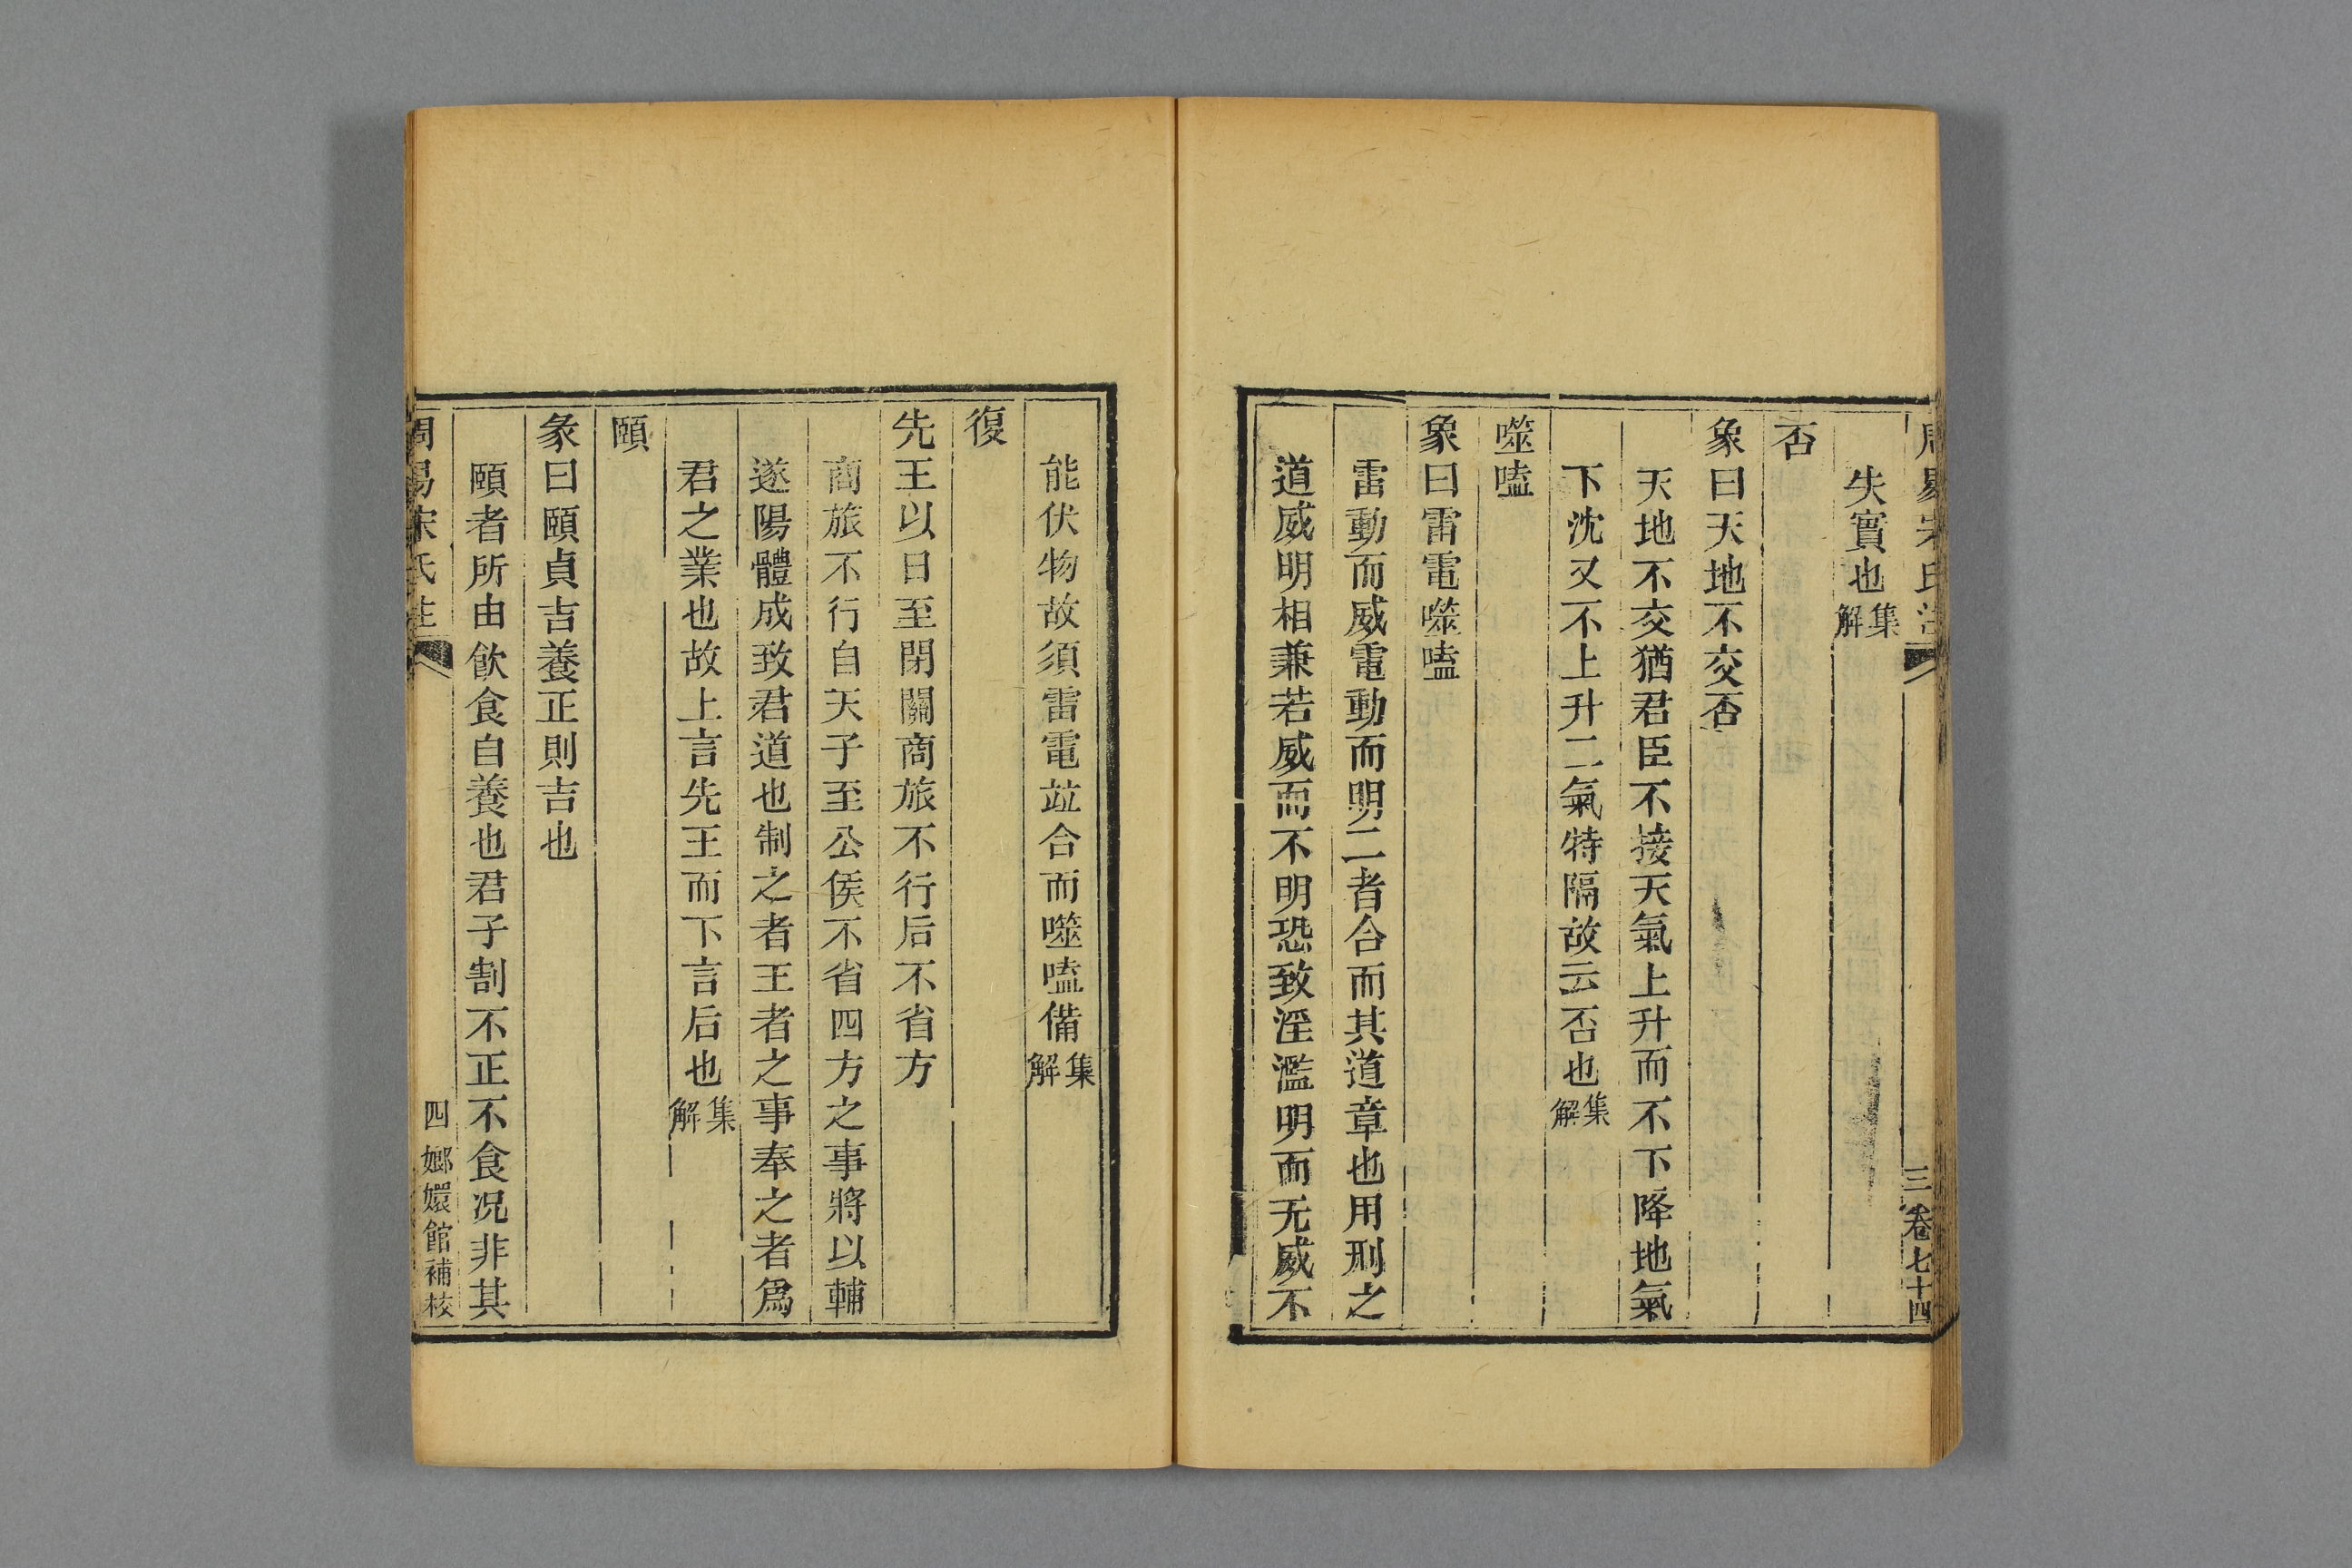 周易宋氏注
三
卷七十四
失實也集解
否
象曰天地不交否
天地不交猶君臣不接天氣上升而不下降地氣
下沈又不上升二氣特隔故云否也集解
噬嗑
象曰雷電噬嗑
雷動而威電動而明二者合而其道章也用刑之
道威明相兼若威而不明恐致淫濫明而无威不
能伏物故須雷電竝合而噬嗑備集解
復
先王以日至閉關商旅不行后不省方
商旅不行自天子至公侯不省四方之事將以輔
遂陽體成致君道也制之者王者之事奉之者爲
君之業也故上言先王而下言后也集解
頤
彖曰頤貞吉養正則吉也
頤者所由飲食自養也君子割不正不食况非其
周易宋氏注
四
嫏嬛館補校